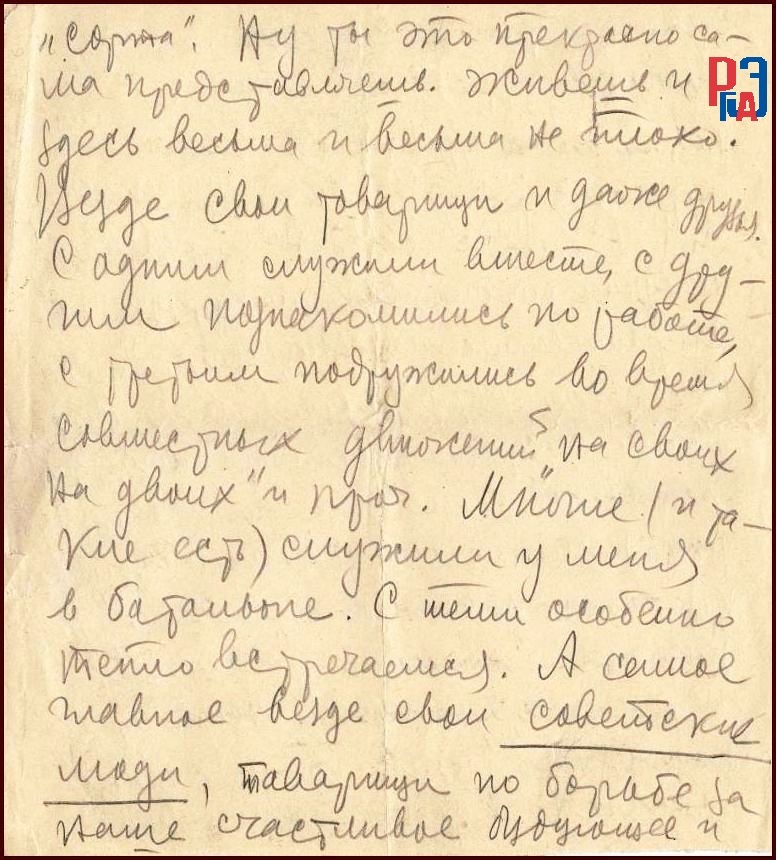 „сорта“. Ну ты это прекрасно са-
ма представляешь. Живешь и
здесь весьма и весьма не плохо.
Везде свои товарищи и даже друзья.
С одним служили вместе, с дру-
гим познакомились по работе,
с третьим подружились во время
совместных движений „на своих
на двоих“ и проч. Многие (и та-
кие есть) служили у меня
в батальоне. С теми особенно
тепло встречаемся. А самое
главное везде свои советские
люди, товарищи по борьбе за
наше счастливое будующее и